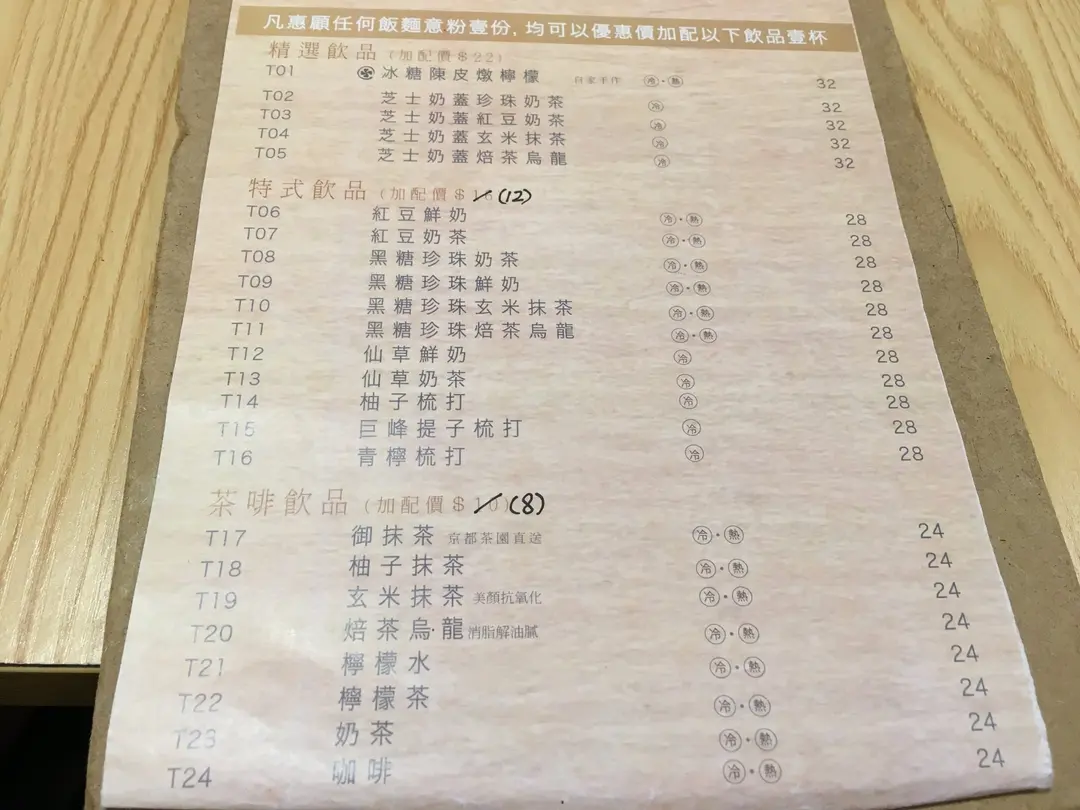 凡惠顧任何飯麵意粉壹份, 均可以優惠價加配以下飲品壹杯
精選飲品 (加配價$22)
T01 冰糖陳皮燉檸檬 自家手作 冷·熱 32
T02 芝士奶蓋珍珠奶茶 冷 32
T03 芝士奶蓋紅豆奶茶 冷 32
T04 芝士奶蓋玄米抹茶 冷 32
T05 芝士奶蓋焙茶烏龍 冷 32
特式飲品 (加配價$ (12)
T06 紅豆鮮奶 冷·熱 28
T07 紅豆奶茶 冷·熱 28
T08 黑糖珍珠奶茶 冷·熱 28
T09 黑糖珍珠鮮奶 冷·熱 28
T10 黑糖珍珠玄米抹茶 冷·熱 28
T11 黑糖珍珠焙茶烏龍 冷·熱 28
T12 仙草鮮奶 冷 28
T13 仙草奶茶 冷 28
T14 柚子梳打 冷 28
T15 巨峰提子梳打 冷 28
T16 青檸梳打 冷 28
茶啡飲品 (加配價$10) (8)
T17 御抹茶 京都茶園直送 冷·熱 24
T18 柚子抹茶 冷·熱 24
T19 玄米抹茶 美顏抗氧化 冷·熱 24
T20 焙茶烏龍 消脂解油膩 冷·熱 24
T21 檸檬水 冷·熱 24
T22 檸檬茶 冷·熱 24
T23 奶茶 冷·熱 24
T24 咖啡 冷·熱 24